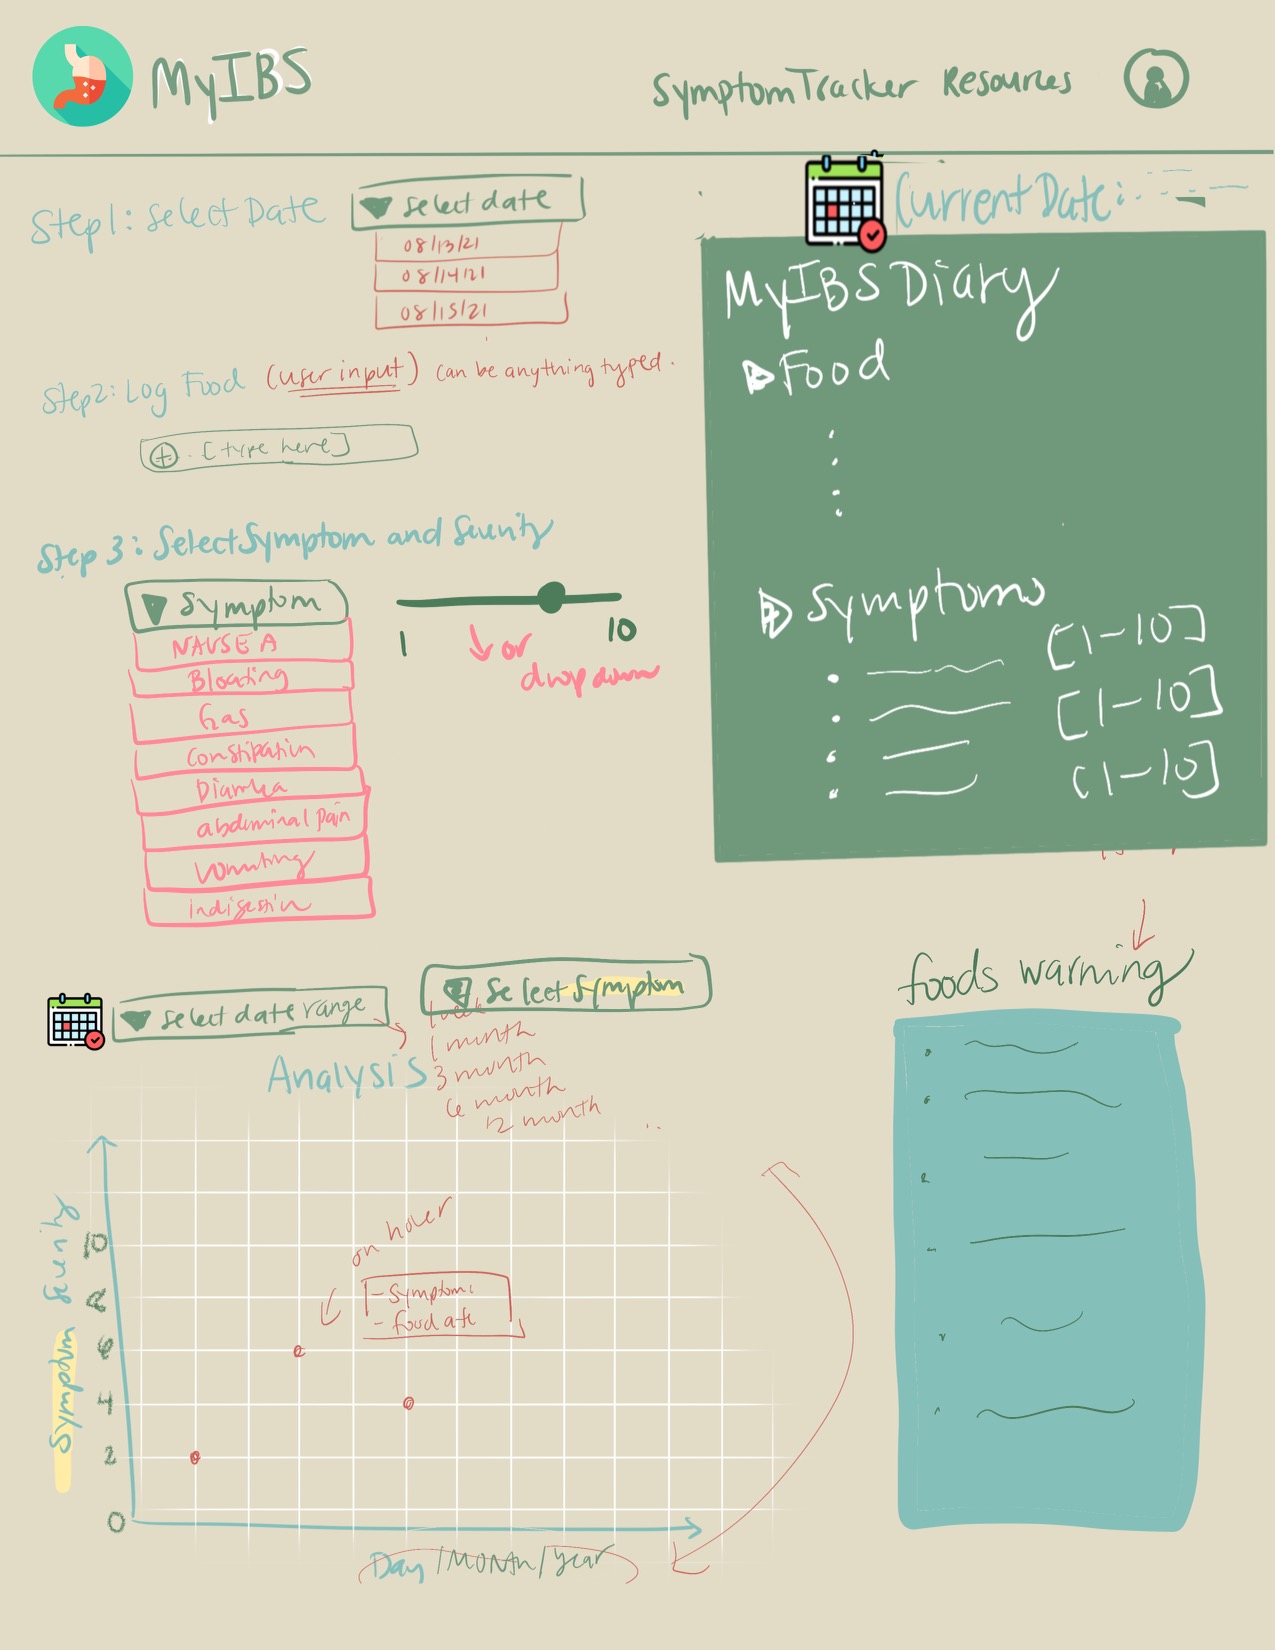 MyIBS
SymptomTracker Resources
Step1: Select Date
select date
08/13/21
08/14/21
08/15/21
Current Date:
MyIBS Diary
Food
Symptoms
[1-10]
[1-10]
[1-10]
Step2: Log Food (user input) can be anything typed.
[type here]
Step 3: Select Symptom and Severity
Symptom
NAUSEA
Bloating
Gas
Constipation
Diarrhea
abdominal pain
Vomiting
indigestion
1
10
or
dropdown
select date range
Select Symptom
1 week
1 month
3 month
6 month
12 month
Analysis
foods warning
Symptom Severity
10
8
6
4
2
0
on hover
- Symptoms
- food ate
Day/MONTH/year